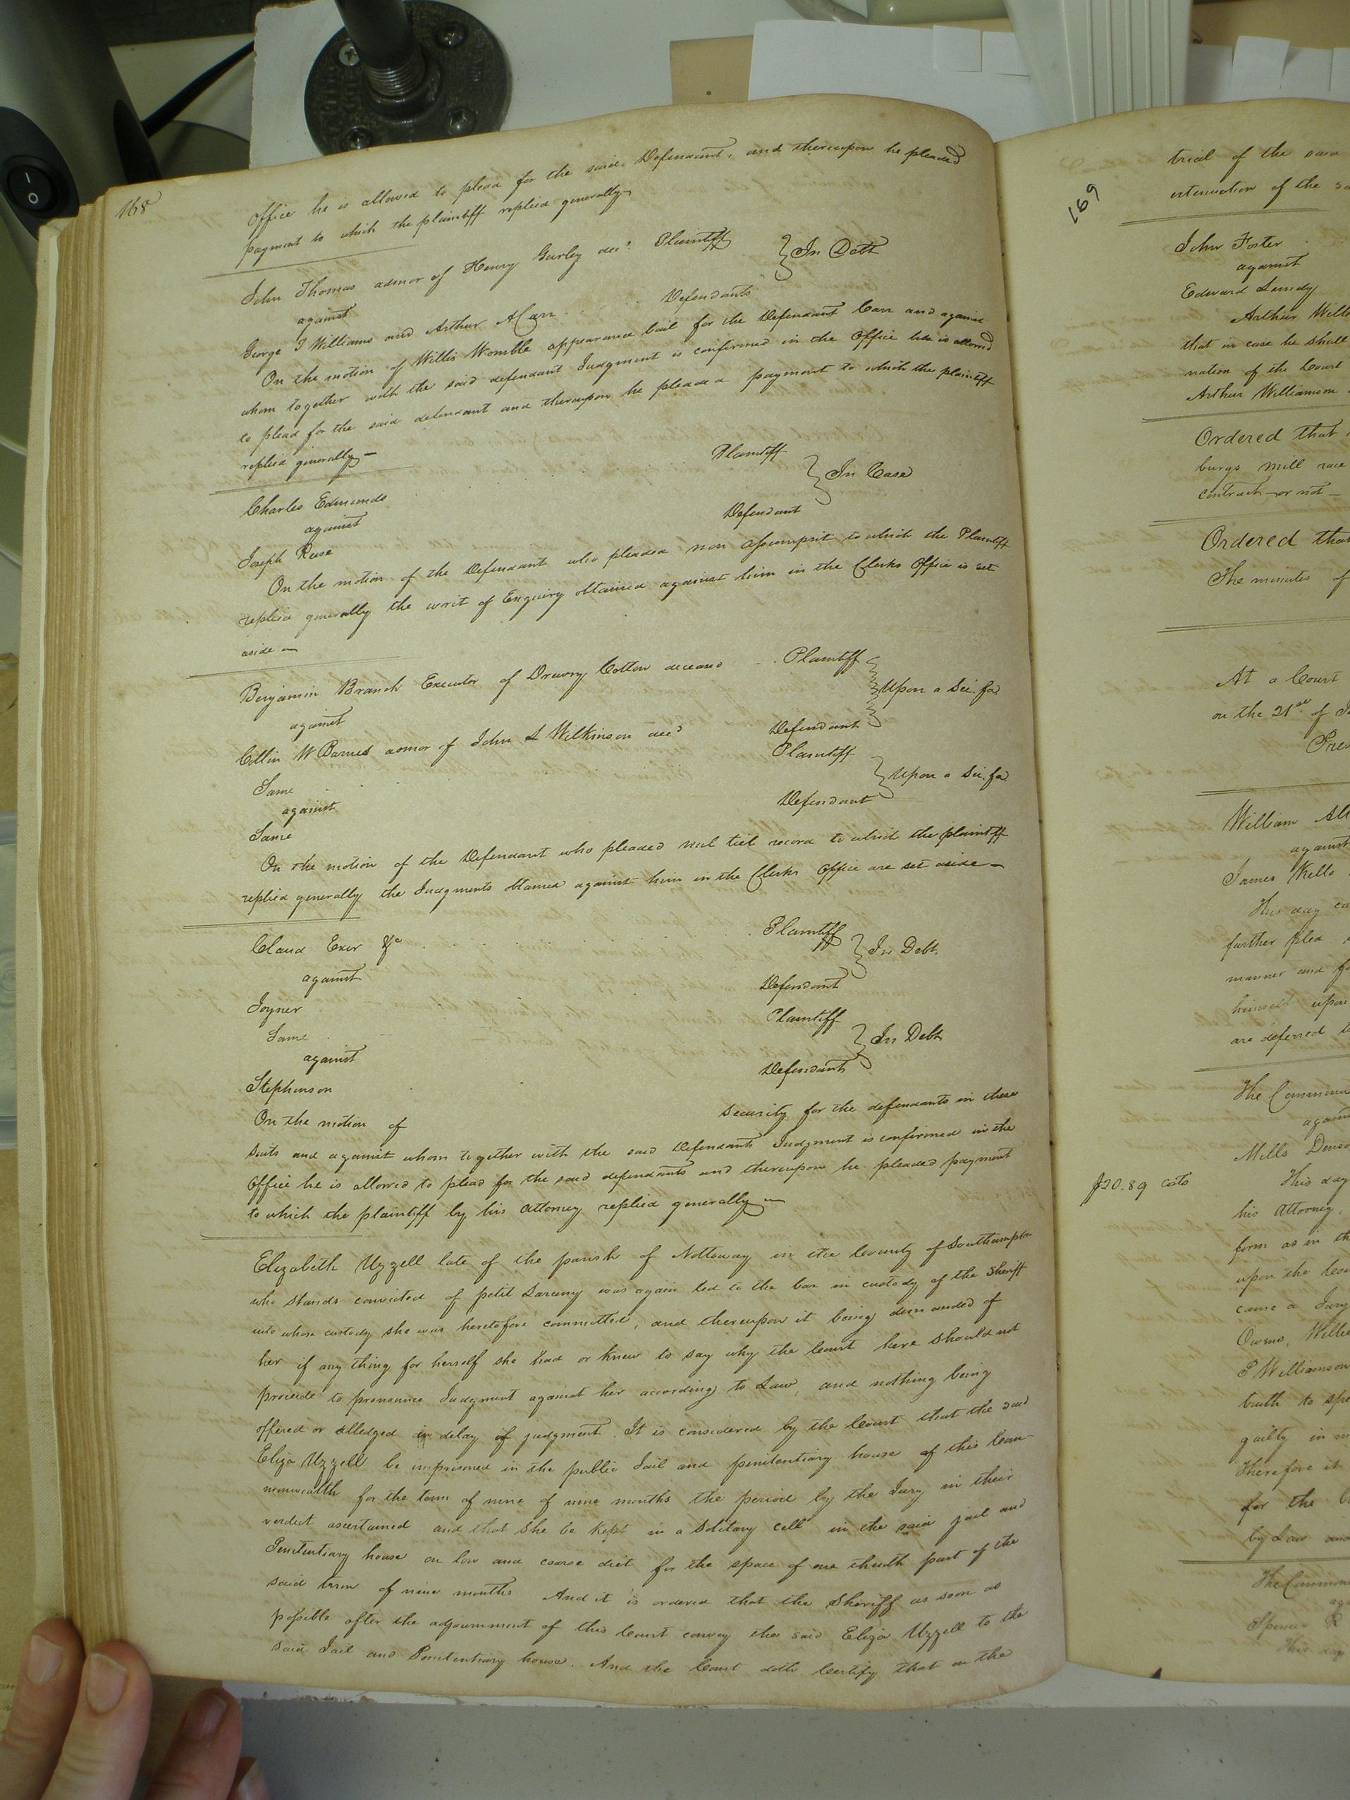 168
Office he is allowed to plead for the said Defendant, and thereupon he pleaded
payment to which the plaintiff replied generally
John Thomas admor of Henry Gurley decd Plaintiff
against In Debt
George T Williams and Arthur A Carr Defendants
On the motion of Willis Womble appearance bail for the Defendant Carr and against
whom together with the said defendant Judgment is confirmed in the Office he is allowed
to plead for the said defendant and thereupon he pleaded payment to which the plaintiff
replied generally
Charles Edmunds Plaintiff
against In Case
Joseph Rese Defendant
On the motion of the Defendant who pleaded non assumpsit to which the Plaintiff
replied generally the writ of Enquiry obtained against him in the Clerks Office is set
aside
Benjamin Branch Executor of Drewry Cotton deceased Plaintiff
against Upon a Sci. fa
Collin W Barnes admor of John L Wilkinson decd Defendant
Same Plaintiff
against Upon a Sci. fa
Same Defendant
On the motion of the Defendant who pleaded nul tiel record to which the plaintiff
replied generally the Judgments obtained against him in the Clerks Office are set aside
Claud Exor &c Plaintiff
against In Debt
Joyner Defendant
Same Plaintiff
against In Debt
Stephenson Defendant
On the motion of security for the defendants in these
suits and against whom together with the said Defendants Judgment is confirmed in the
Office he is allowed to plead for the said defendants and thereupon he pleaded payment
to which the plaintiff by his attorney replied generally
Elizabeth Uzzell late of the parish of Nottoway in the County of Southampton
who stands convicted of petit Larceny was again led to the bar in custody of the Sheriff
into whose custody she was heretofore committed, and thereupon it being demanded of
her if any thing for herself she had or knew to say why the Court here should not
proceed to pronounce Judgment against her according to Law, and nothing being
offered or alledged in delay of judgment. It is considered by the Court that the said
Eliza Uzzell be imprisoned in the public Jail and penitentiary house of this Com
monwealth for the term of nine of nine months the period by the Jury in their
verdict ascertained and that she be kept in a solitary cell in the said jail and
Penitentiary house on low and coarse diet for the space of one twelfth part of the
said term of nine months And it is ordered that the Sheriff as soon as
possible after the adjournment of this Court convey the said Eliza Uzzell to the
said Jail and Penitentiary house. And the Court doth Certify that on the
169
trial of the said
intervention of the
John Foster
against
Edward Lundy
Arthur Will
that in case he shall
nation of the Court
Arthur Williamson
Ordered that
burgs mill race
contract or not
Ordered that
The minutes of
At a Court
on the 21st of
Pres
William
against
James Kello
This day ca
further plea
manner and f
himself upon
are deferred
The Commonw
against
Mills Denso
$20.89 costs
This day
his Attorney,
form as in th
upon the
came a Jury
Owens, Willi
P Williamson
truth to spe
guilty in m
Therefore it
for the
by Law and
The Common
Spencer R
This day